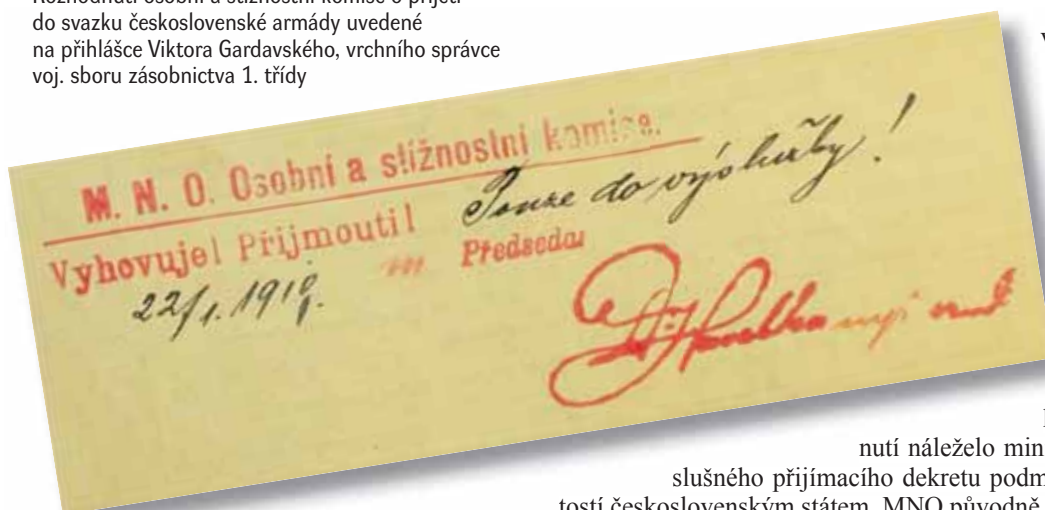 do svazku československé armády uvedené
na přihlášce Viktora Gardavského, vrchního správce
voj. sboru zásobnictva 1. třídy
M. N. O. Osobní a stížnostní komise.
Vyhovuje! Přijmouti!
Pouze do výsluhy!
22/1. 1919.
Předseda:
nutí náleželo min
slušného přijímacího dekretu podm
tostí československým státem. MNO původně